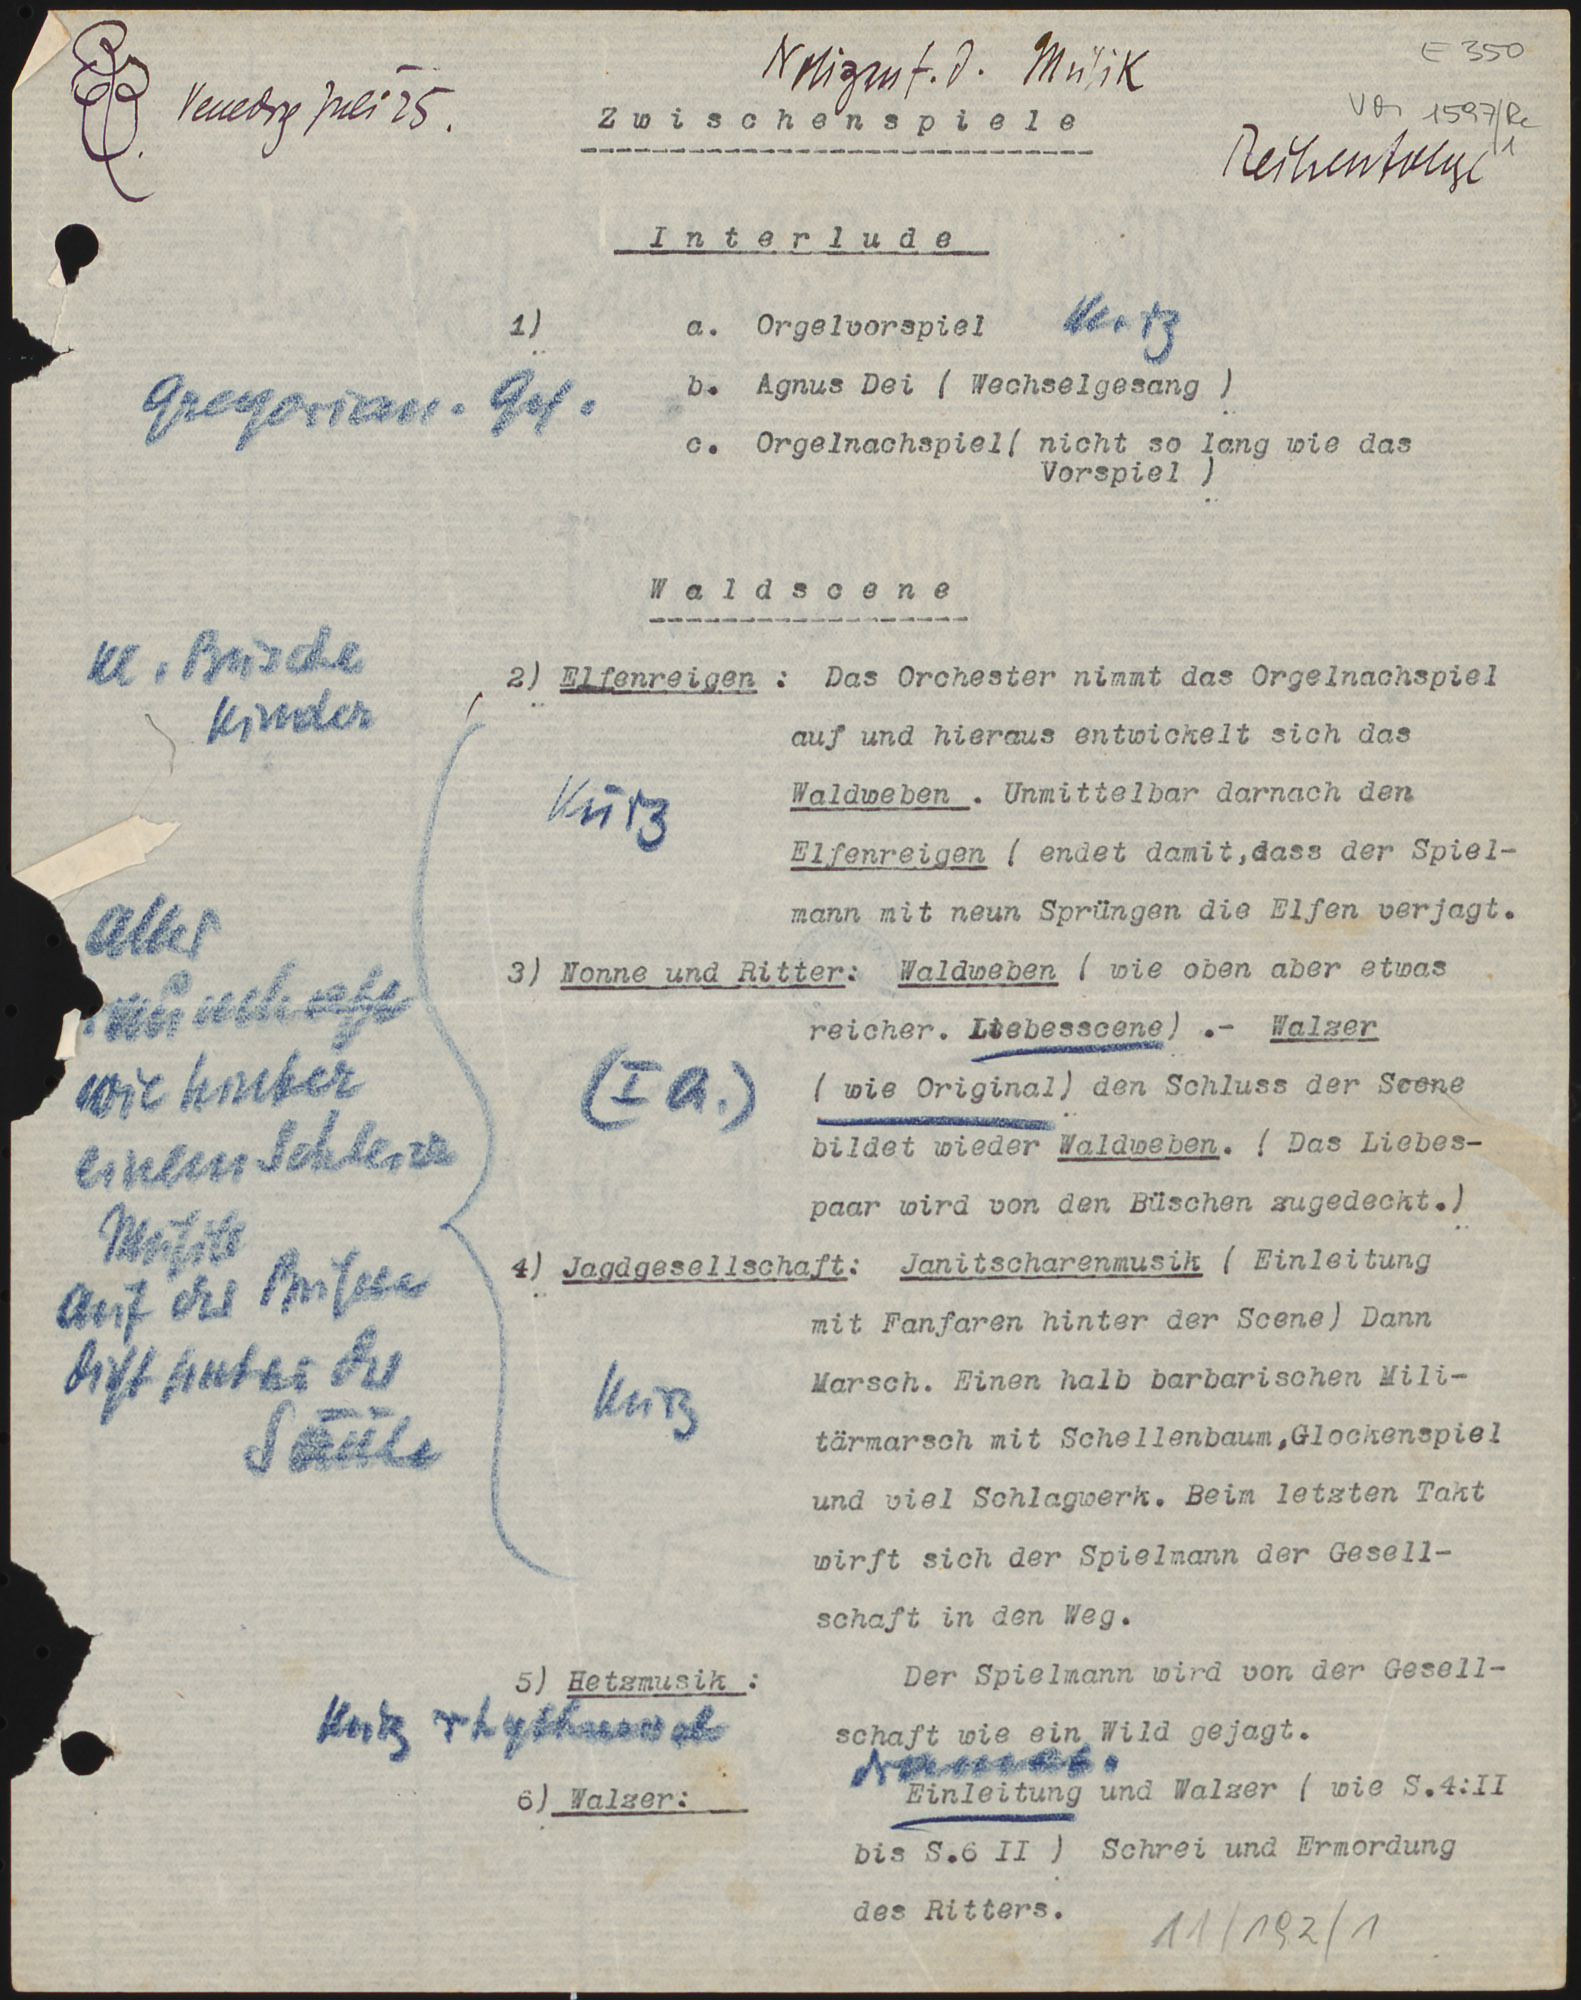 Notizen f. d. Musik
E 350
Venedig Juli 25.
Zwischenspiele
VM 1597/Re
1
Reihenfolge
Interlude
1) a. Orgelvorspiel Kurz
Gregorian. Ges.
b. Agnus Dei ( Wechselgesang )
c. Orgelnachspiel( nicht so lang wie das
Vorspiel )
Waldscene
Kl. Büsche
Kinder
2) Elfenreigen : Das Orchester nimmt das Orgelnachspiel
auf und hieraus entwickelt sich das
Kurz
Waldweben . Unmittelbar darnach den
Elfenreigen ( endet damit,dass der Spiel-
mann mit neun Sprüngen die Elfen verjagt.
Alles
wie hinter
einem Schleier
Musik
auf der
hinter der
Säule
3) Nonne und Ritter: Waldweben ( wie oben aber etwas
reicher. Liebesscene) .- Walzer
(I a.)
( wie Original) den Schluss der Scene
bildet wieder Waldweben. ( Das Liebes-
paar wird von den Büschen zugedeckt.)
4) Jagdgesellschaft: Janitscharenmusik ( Einleitung
mit Fanfaren hinter der Scene) Dann
Kurz
Marsch. Einen halb barbarischen Mili-
tärmarsch mit Schellenbaum,Glockenspiel
und viel Schlagwerk. Beim letzten Takt
wirft sich der Spielmann der Gesell-
schaft in den Weg.
5) Hetzmusik : Der Spielmann wird von der Gesell-
Kurz rhythmisch
schaft wie ein Wild gejagt.
6) Walzer: Einleitung und Walzer ( wie S.4:II
bis S.6 II ) Schrei und Ermordung
des Ritters.
11/192/1